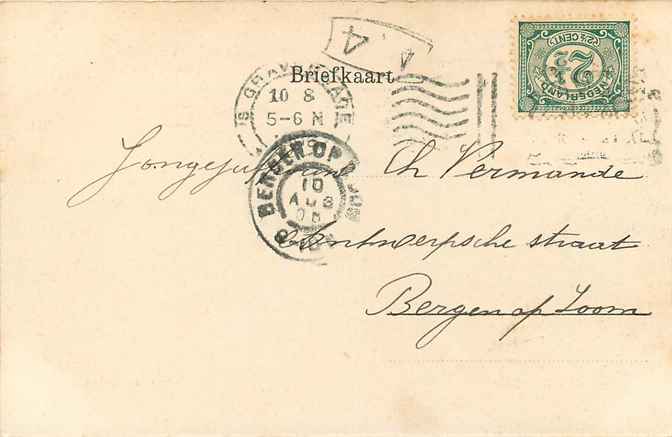 4
Briefkaart
'S GRAVENHAGE
10 8
5-6 N
NEDERLAND
2½
(2½ CENT)
BERGEN OP ZOOM
10
AUG
08
Jongejufvrouw Ch Vermande
Antwerpsche straat
Bergen op Zoom